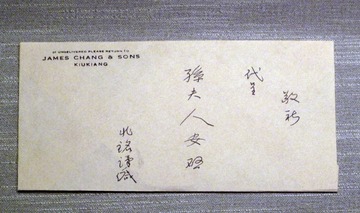 IF UNDELIVERED PLEASE RETURN TO
JAMES CHANG & SONS
KIUKIANG
敬祈
代呈
孫夫人安啓